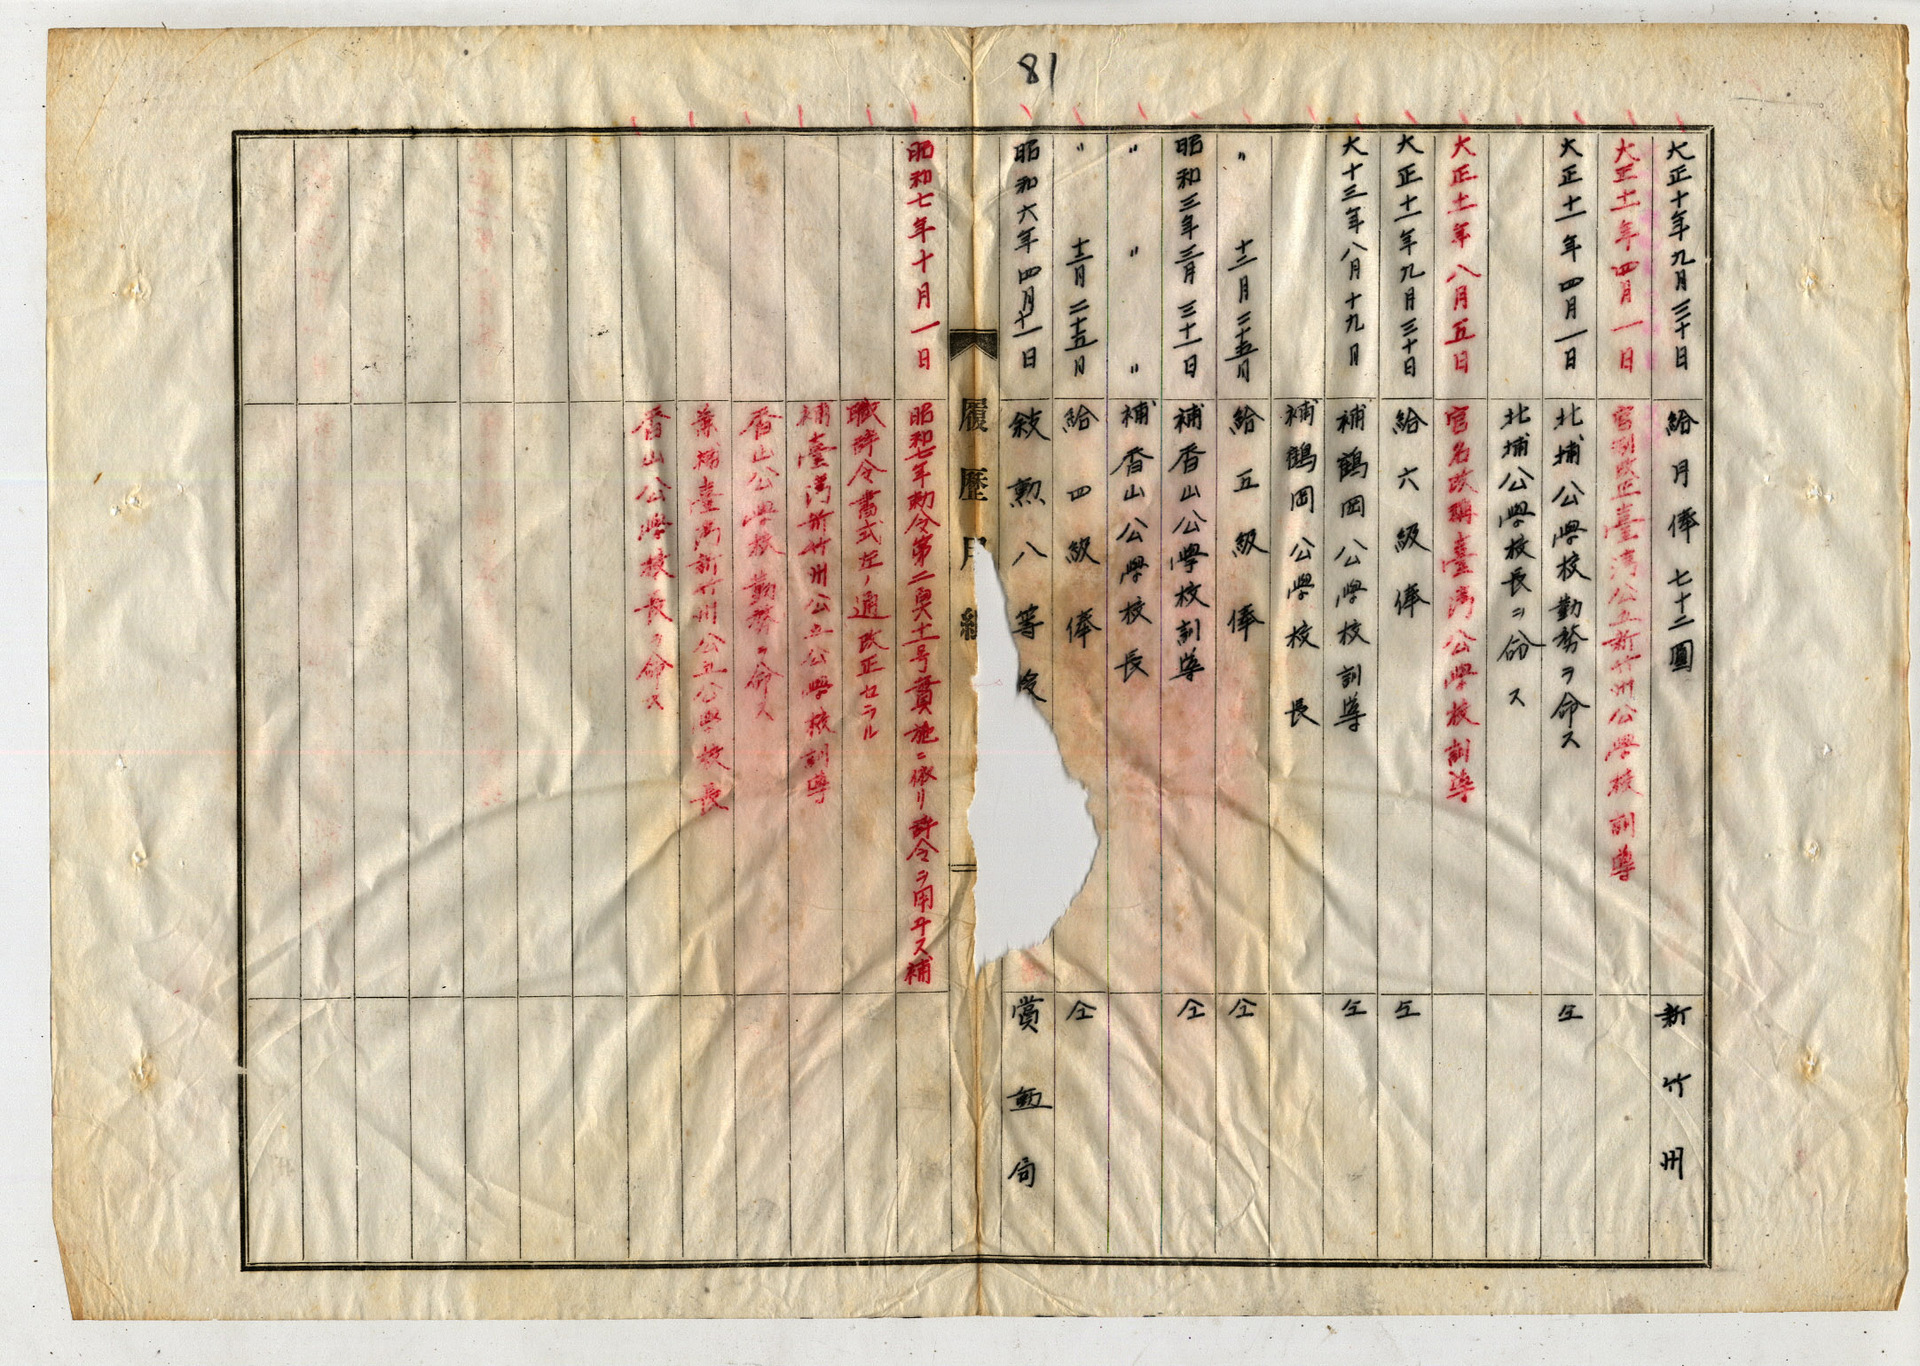 81
大正十年九月三十日 給月俸七十二圓 新竹州
大正十一年四月一日 官制改正臺灣公立新竹州公學校訓導
大正十一年四月一日 北埔公學校勤務ヲ命ス 仝
北埔公學校長ニ命ス
大正十一年八月五日 官名改稱臺灣公學校訓導
大正十一年九月三十日 給六級俸 仝
大十三年八月十九月 補鶴岡公學校訓導 仝
補鶴岡公學校長
〃 十二月二十五月 給五級俸 仝
昭和三年三月三十一日 補香山公學校訓導 仝
〃 〃 〃 補香山公學校長
〃 十二月二十五月 給四級俸 仝
昭和六年四月十一日 敍勲八等 賞勲局
履歴用紙
昭和七年十月一日 昭和七年勅令第二 十一号 施ニ依リ辞令ヲ用ヰス補
職辞令書式左ノ通改正セラル
補臺灣新竹州公立公學校訓導
香山公學校勤務ヲ命ス
兼補臺灣新竹州公立公學校長
香山公學校長ヲ命ス